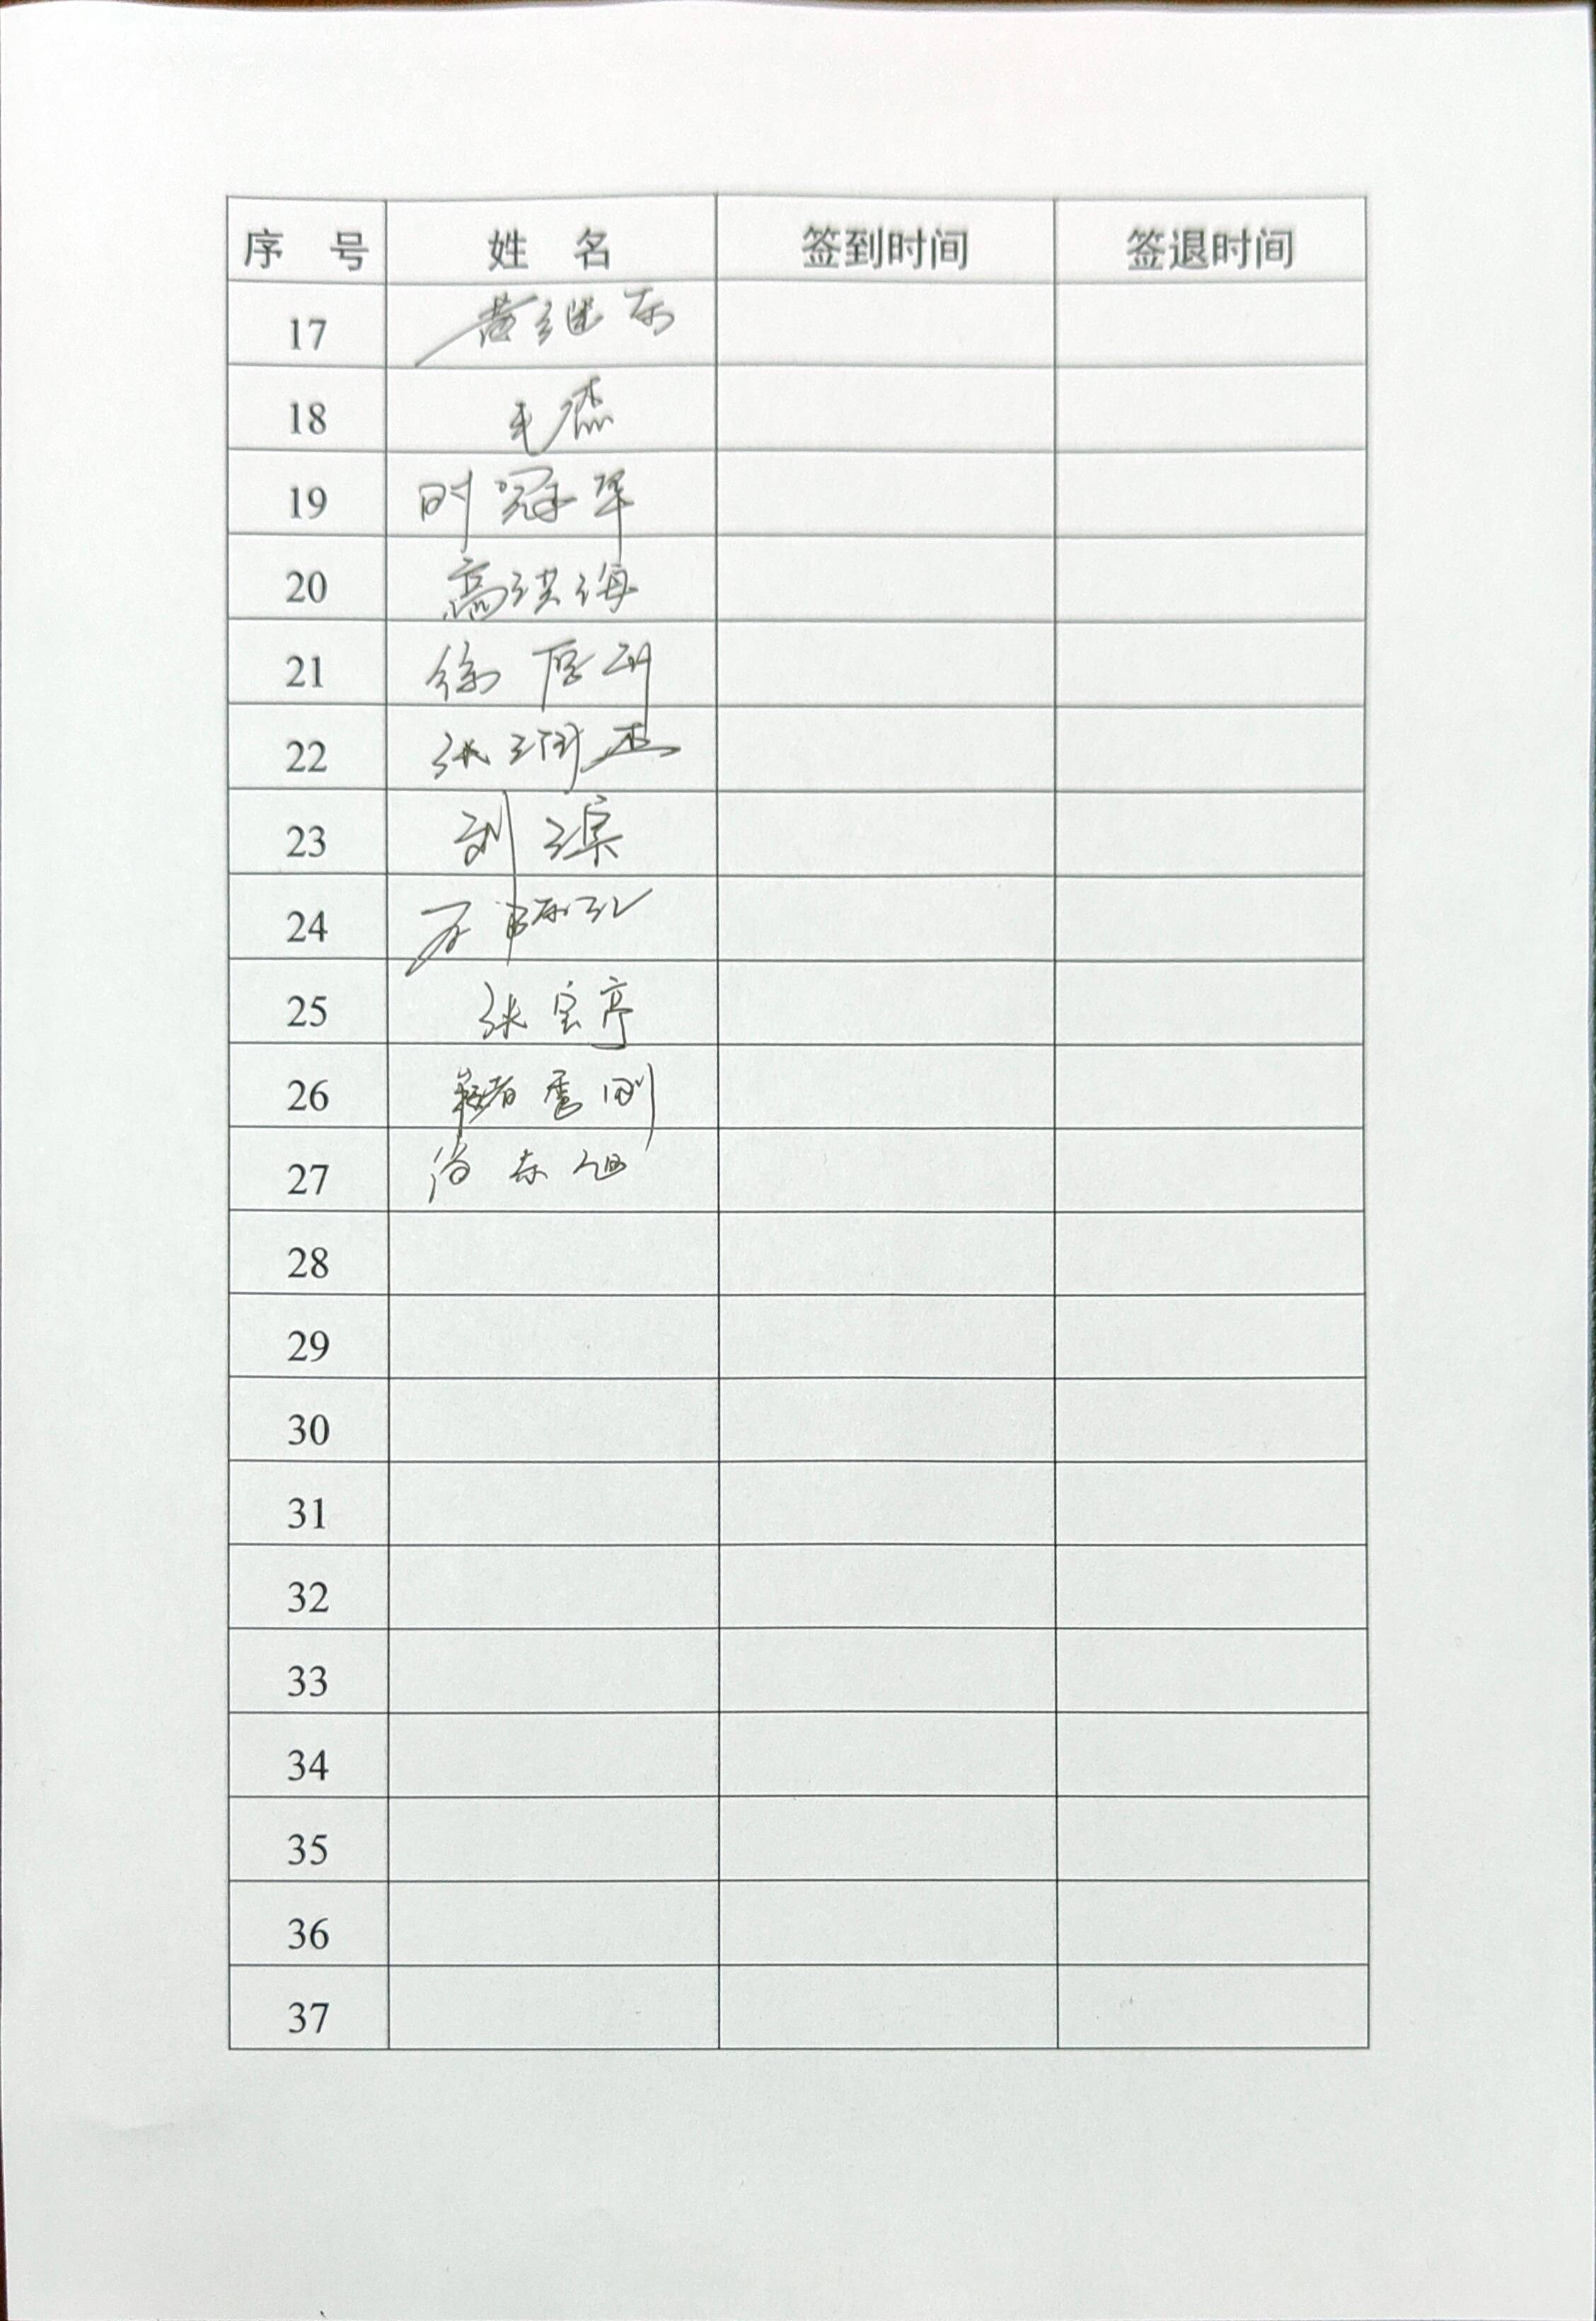 序 号 姓 名 签到时间 签退时间
17 黄继东
18 毛杰
19 时冠军
20 高洪海
21 徐厚刚
22 张润杰
23 刘滨
24
25 张宝亭
26 禚香刚
27 尚东旭
28
29
30
31
32
33
34
35
36
37